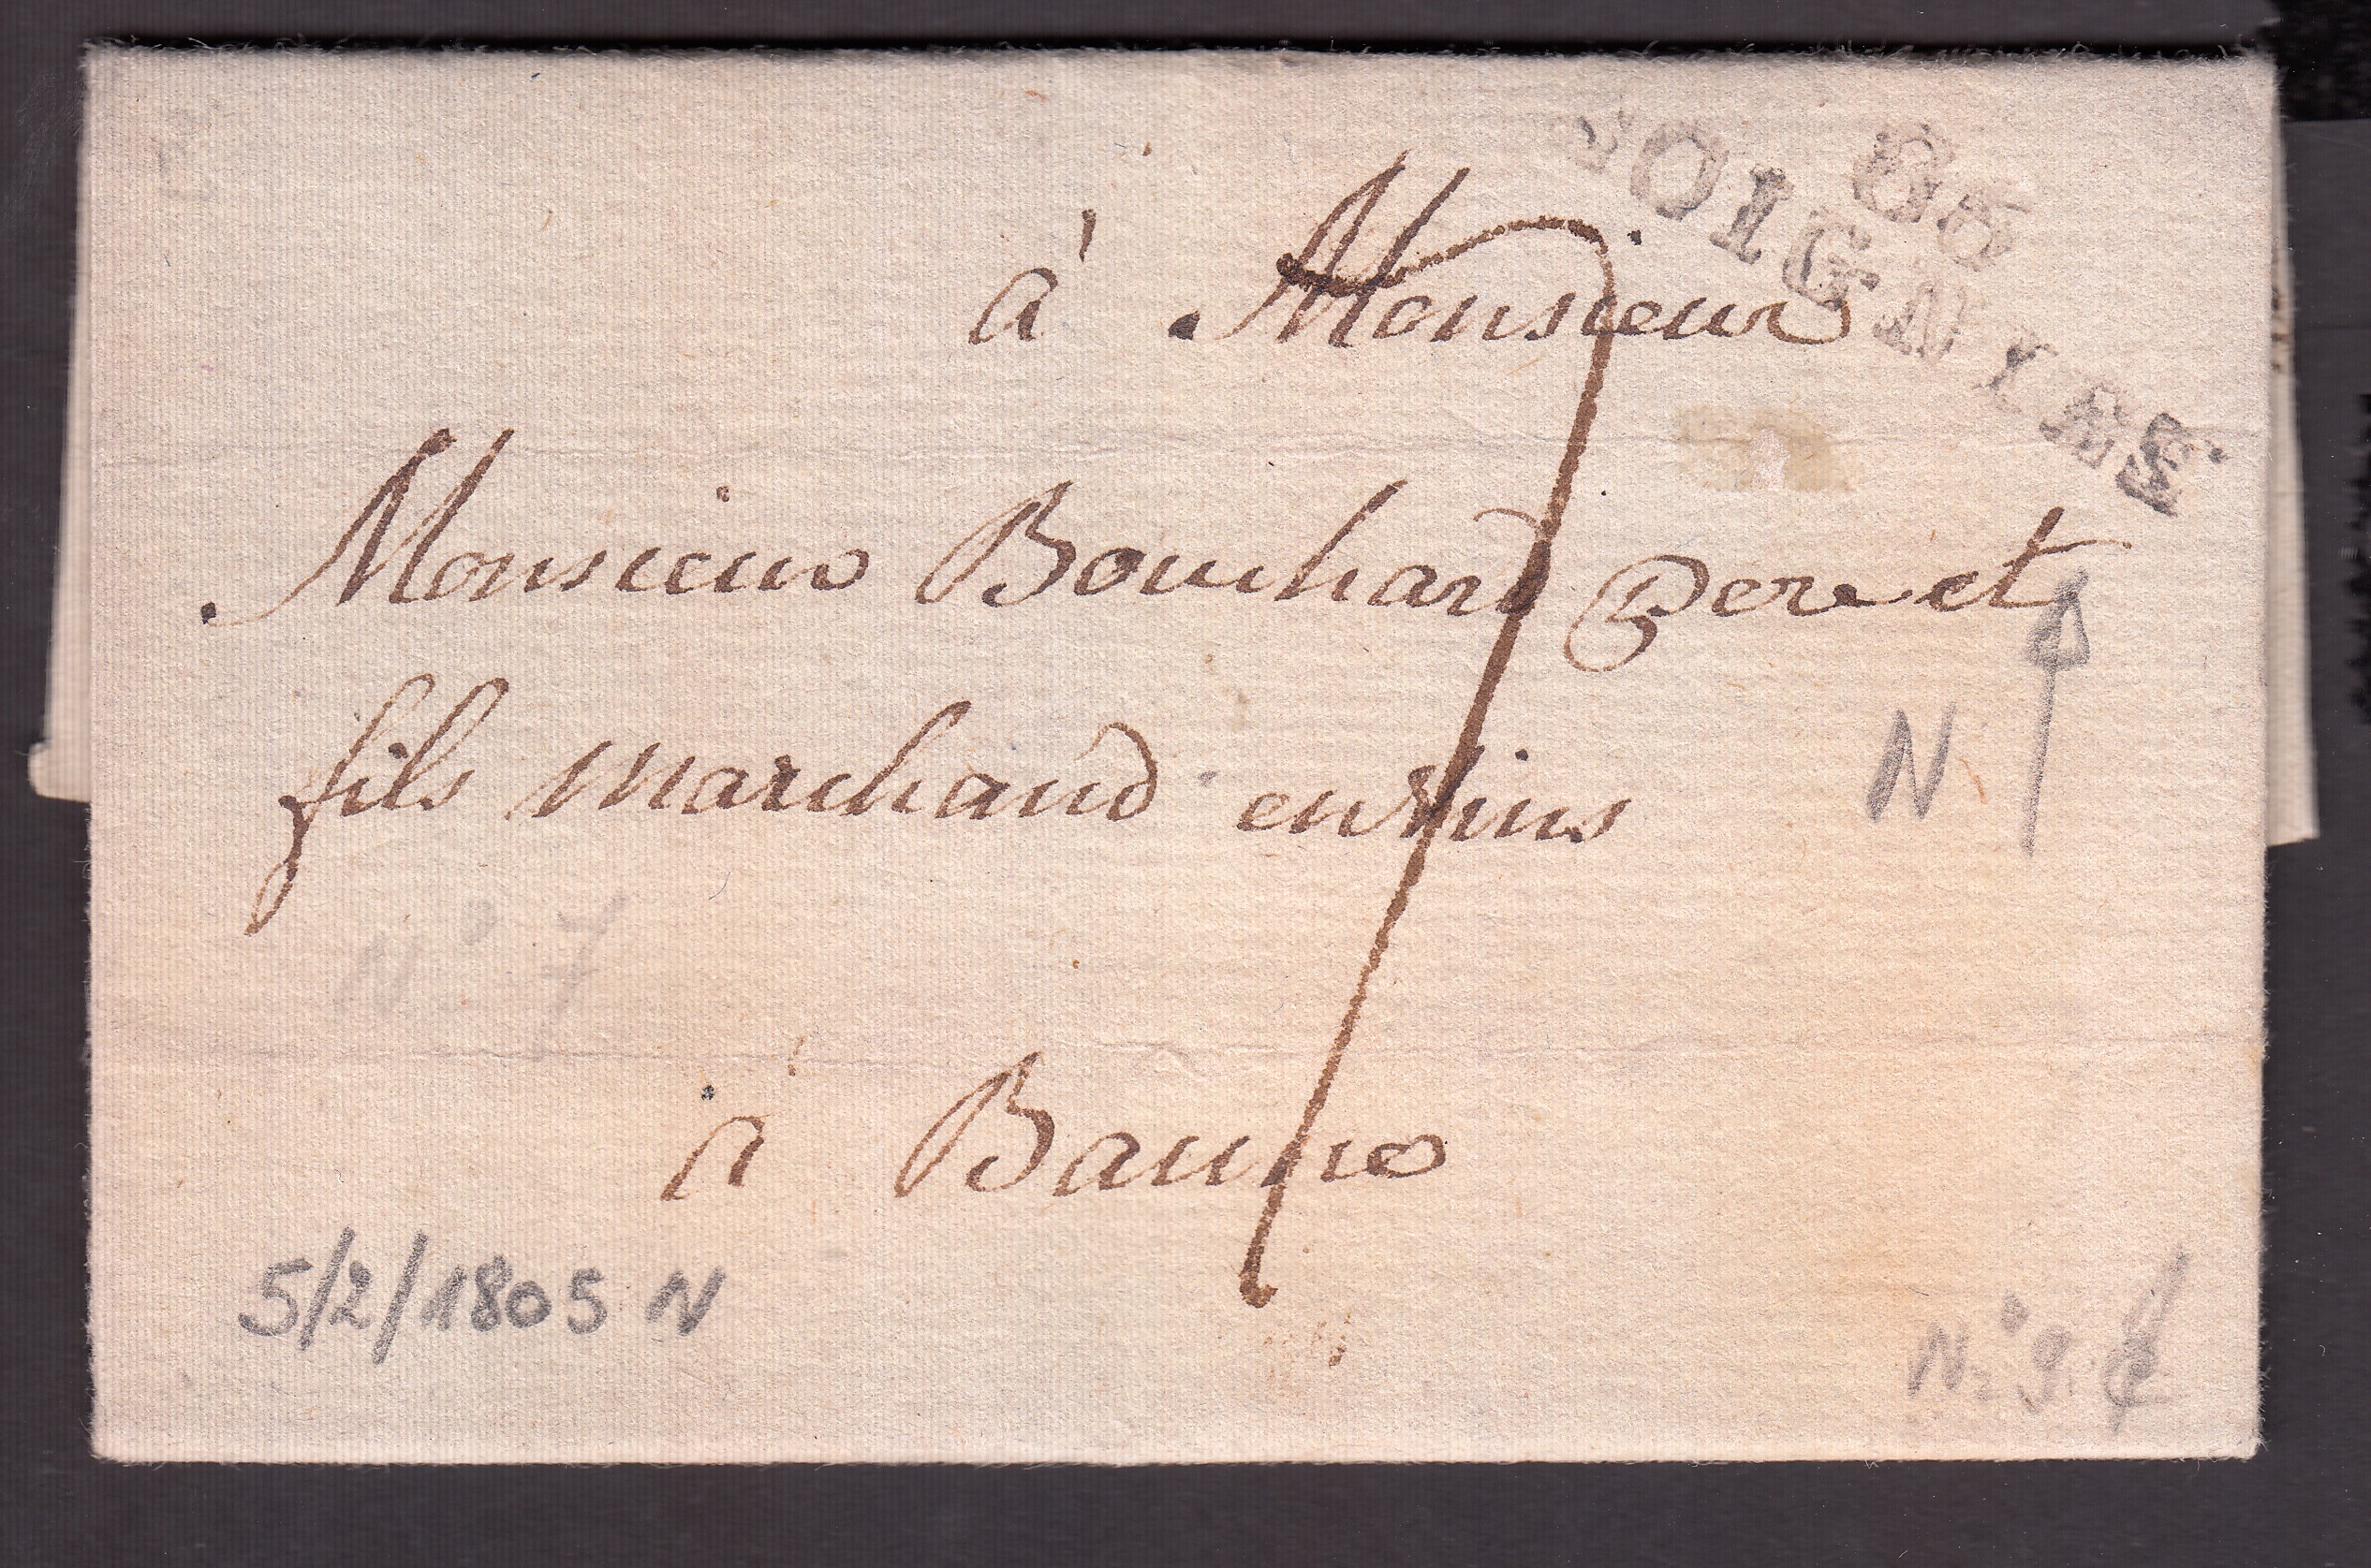 86
SOIGNIES
à Monsieur
7
Monsieur Bouchard Pere et
fils marchand en vins
N
N° 7
à Baune
5/2/1805 N
N° 9